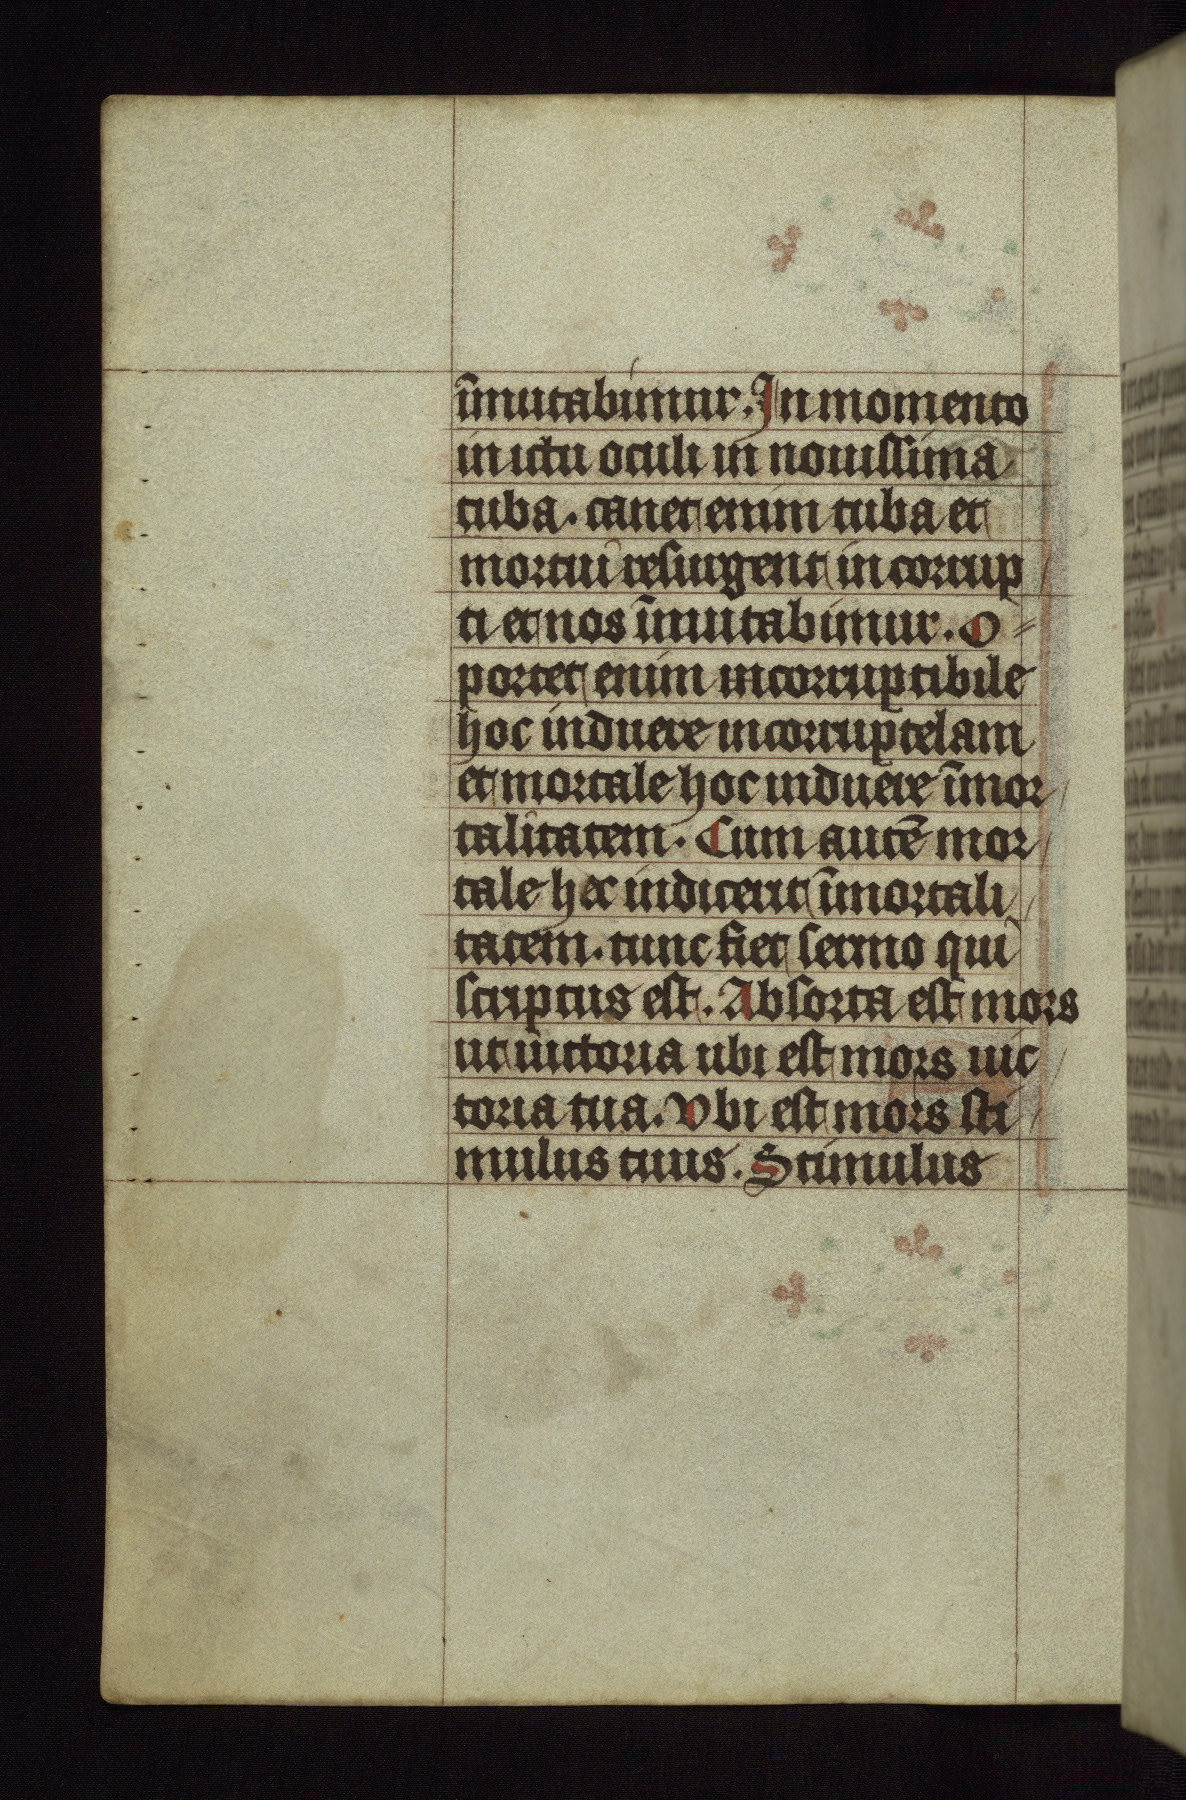 īmutabimur. In momento
in ictu oculi in nouissima
tuba. canet enim tuba et
mortui resurgent in corrup
ti et nos īmutabimur. O=
portet enim incorruptibile
hoc induere incorruptelam
et mortale hoc induere īmor
talitatem. Cum autē mor
tale hoc induerit īmortali
tatem. tunc fiet sermo qui
scriptus est. Absorta est mors
ut uictoria ubi est mors uic
toria tua. Vbi est mors sti
mulus tuus. Stimulus